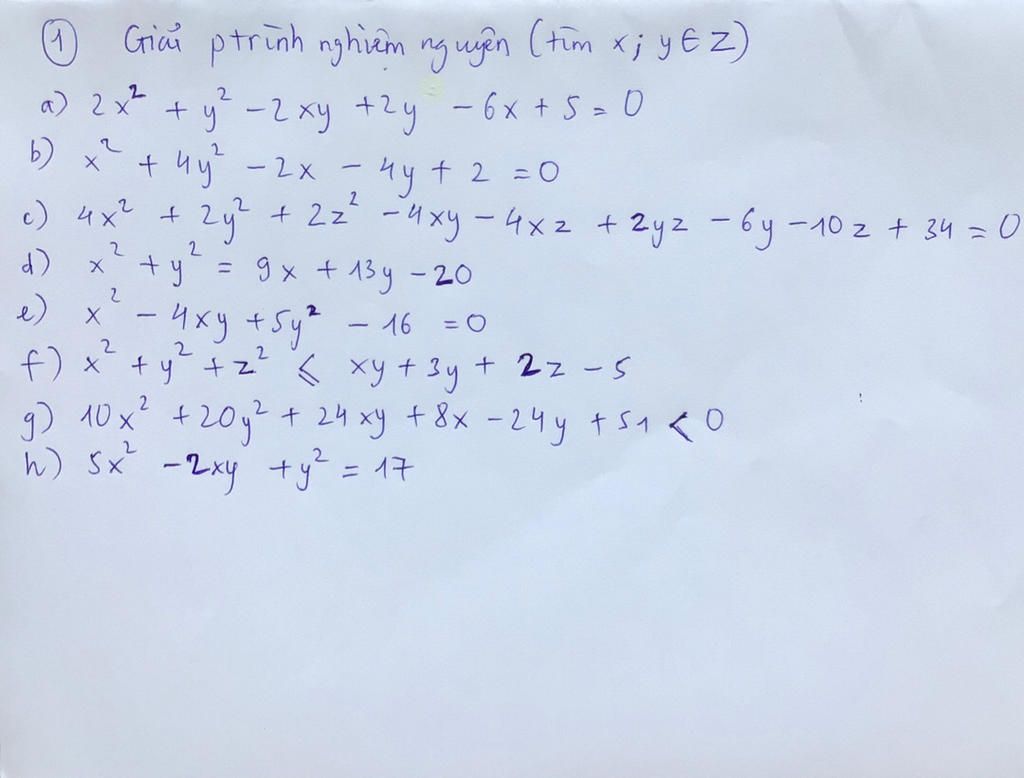 ① Giải ptrình nghiệm nguyên (tìm x; y ∈ Z)
a) 2x² + y² - 2xy + 2y - 6x + 5 = 0
b) x² + 4y² - 2x - 4y + 2 = 0
c) 4x² + 2y² + 2z² - 4xy - 4xz + 2yz - 6y - 10z + 34 = 0
d) x² + y² = 9x + 13y - 20
e) x² - 4xy + 5y² - 16 = 0
f) x² + y² + z² ≤ xy + 3y + 2z - 5
g) 10x² + 20y² + 24xy + 8x - 24y + 51 < 0
h) 5x² - 2xy + y² = 17